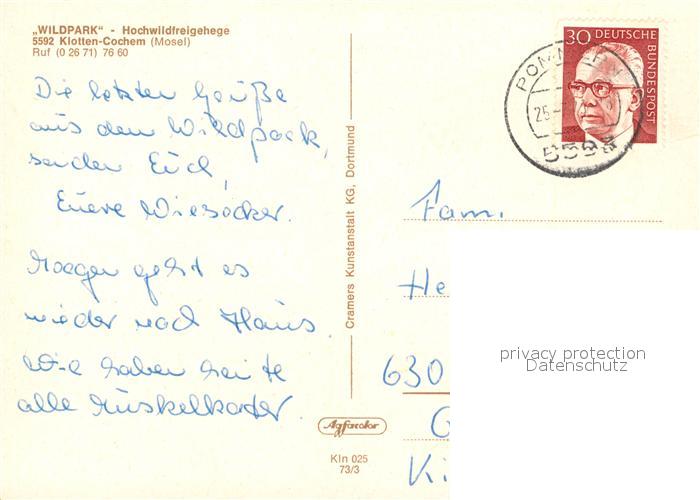 „WILDPARK" - Hochwildfreigehege
5592 Klotten-Cochem (Mosel)
Ruf (0 26 71) 76 60
Die letzten Grüße
aus dem Wildpark,
senden Euch,
Euere Wiesöcker.
Morgen geht es
wieder nach Haus.
Wir haben heute
alle Muskelkater.
Cramers Kunstanstalt KG, Dortmund
Agfacolor
Kln 025
73/3
30 DEUTSCHE
BUNDESPOST
25
Fam.
He
630
G
Ki
privacy protection
Datenschutz